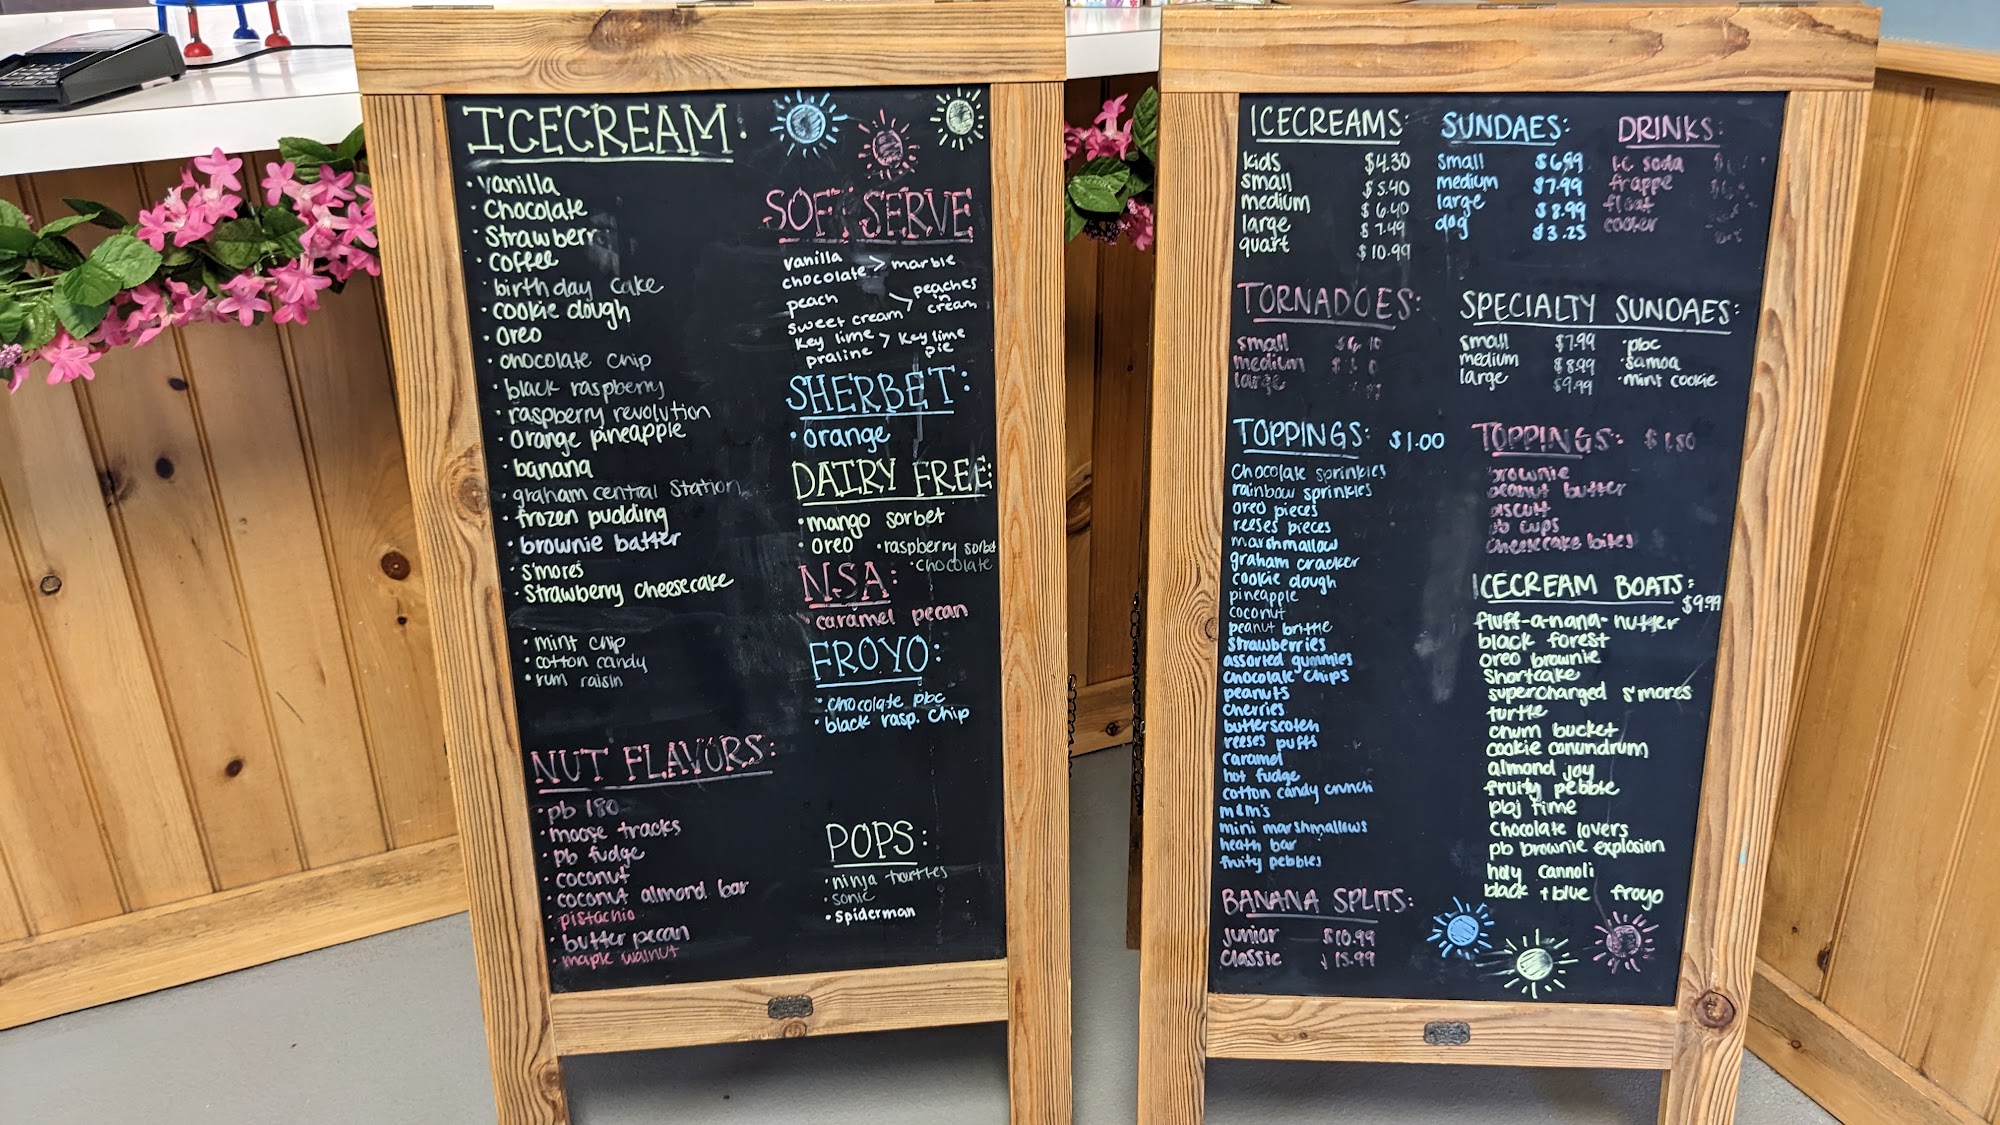 ICECREAM:
• vanilla
• Chocolate
• Strawberr
• Coffee
• birthday cake
• cookie dough
• oreo
• chocolate chip
• black raspberry
• raspberry revolution
• orange pineapple
• banana
• graham central station
• frozen pudding
• brownie batter
• s'mores
• Strawberry cheesecake
• mint chip
• cotton candy
• rum raisin
NUT FLAVORS:
• pb 180
• moose tracks
• pb fudge
• coconut
• coconut almond bar
• pistachio
• butter pecan
• maple walnut
SOFT SERVE
vanilla
chocolate > marble
peach
sweet cream > peaches in cream
key lime
praline > key lime pie
SHERBET:
• orange
DAIRY FREE:
• mango sorbet
• oreo • raspberry sorbet
• chocolate
NSA:
• caramel pecan
FROYO:
• chocolate pbc
• black rasp. chip
POPS:
• ninja turtles
• sonic
• spiderman
ICECREAMS:
kids $4.30
small $5.40
medium $6.40
large $7.49
quart $10.99
SUNDAES:
small $6.99
medium $7.99
large $8.99
dog $3.25
DRINKS:
I.C. soda
frappe
float
cooler
TORNADOES:
small
medium
large
SPECIALTY SUNDAES:
small $7.99 • pbc
medium $8.99 • samoa
large $9.99 • mint cookie
TOPPINGS: $1.00
Chocolate sprinkles
rainbow sprinkles
oreo pieces
reeses pieces
marshmallow
graham cracker
cookie dough
pineapple
coconut
peanut brittle
strawberries
assorted gummies
chocolate chips
peanuts
cherries
butterscotch
reeses puffs
caramel
hot fudge
cotton candy crunch
m&m's
mini marshmallows
heath bar
fruity pebbles
BANANA SPLITS:
junior $10.99
classic 15.99
TOPPINGS: $1.50
brownie
peanut butter
biscuit
pb cups
cheesecake bites
ICECREAM BOATS:
$9.99
fluff-a-nana-nutter
black forest
oreo brownie
shortcake
supercharged s'mores
turtle
chum bucket
cookie conundrum
almond joy
fruity pebble
pbj time
chocolate lovers
pb brownie explosion
holy cannoli
black + blue froyo